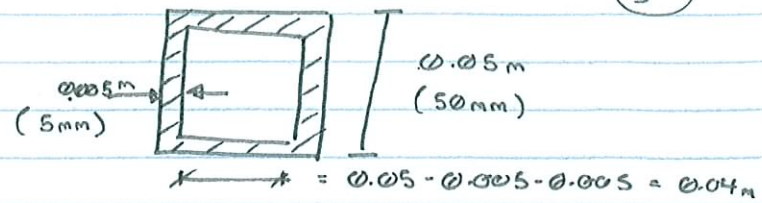 0.005m
(5mm)
0.05m
(50mm)
= 0.05 - 0.005 - 0.005 = 0.04m